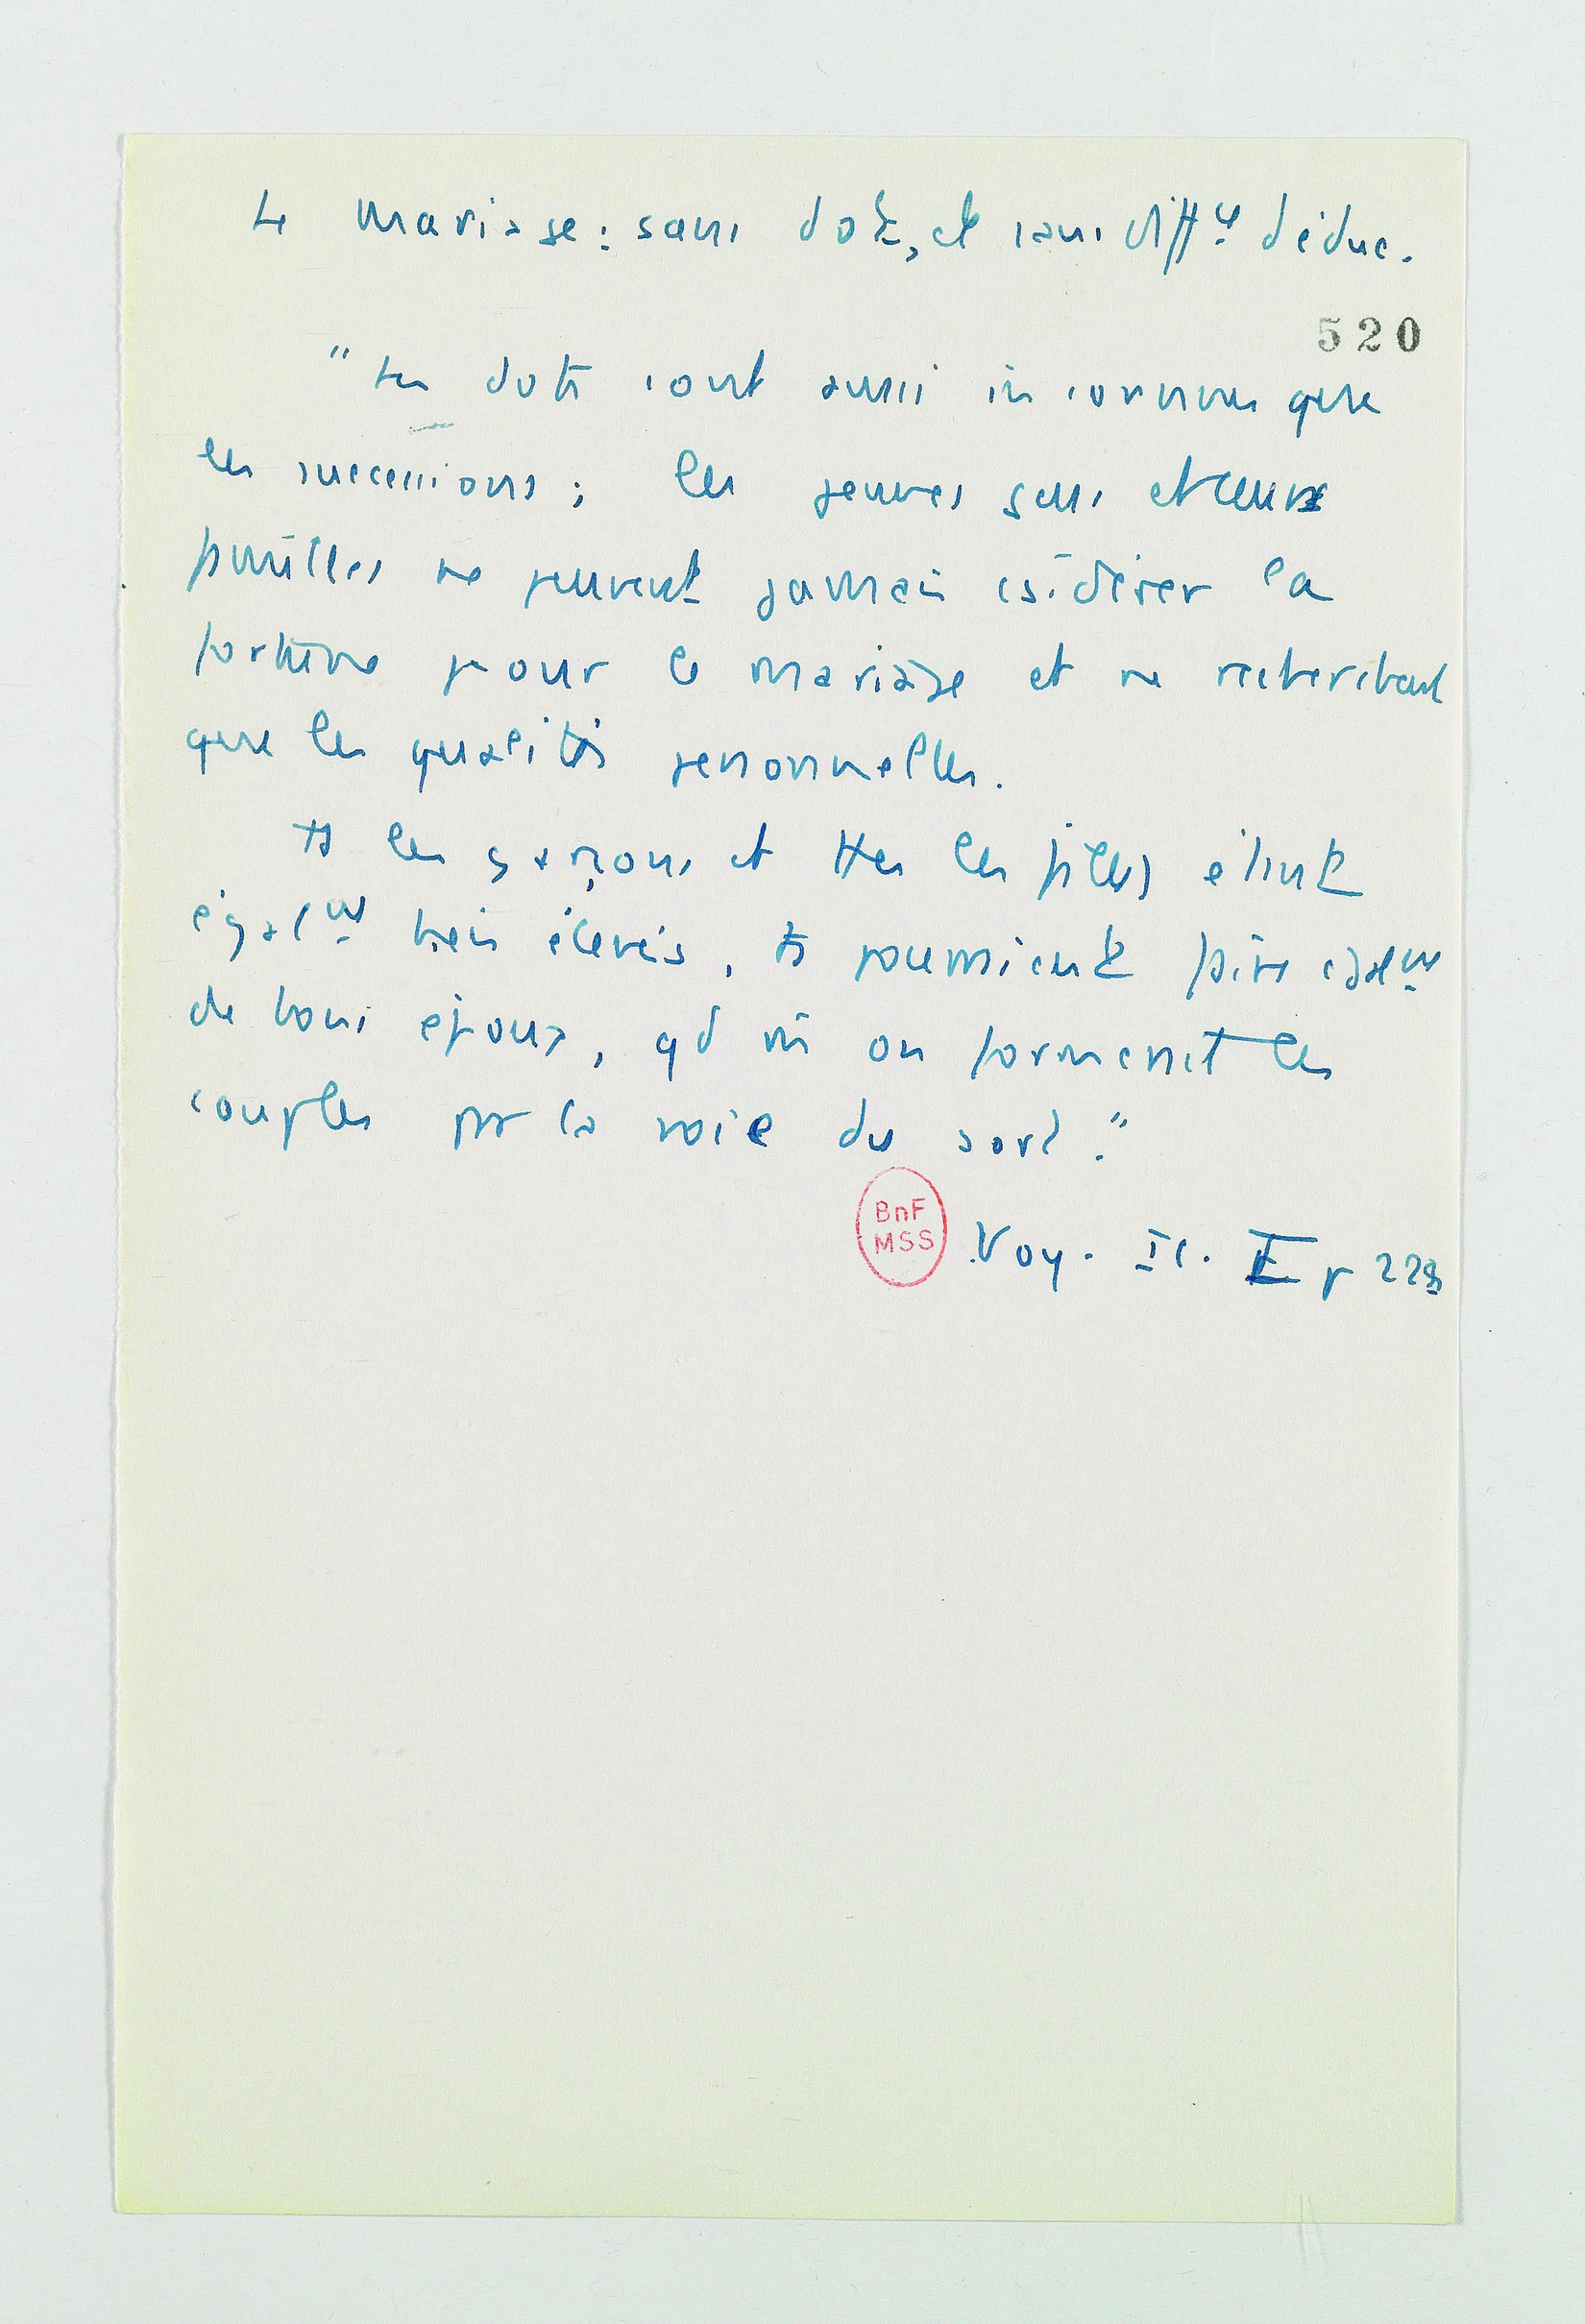 Le mariage : sans dot, et sans diffce d'éduc.
520
"Les dots sont aussi inconnues que
les successions ; les jeunes gens et leurs
familles ne peuvent jamais csidérer la
fortune pour le mariage et ne recherchent
que les qualités personnelles.
Ts les garçons et ttes les filles étant
égalmt bien élevés, ts pourraient faire égalmt
de bons époux, qd m̂ on formerait les
couples par la voie du sort."
BnF
MSS
Voy. Ic. I p 229